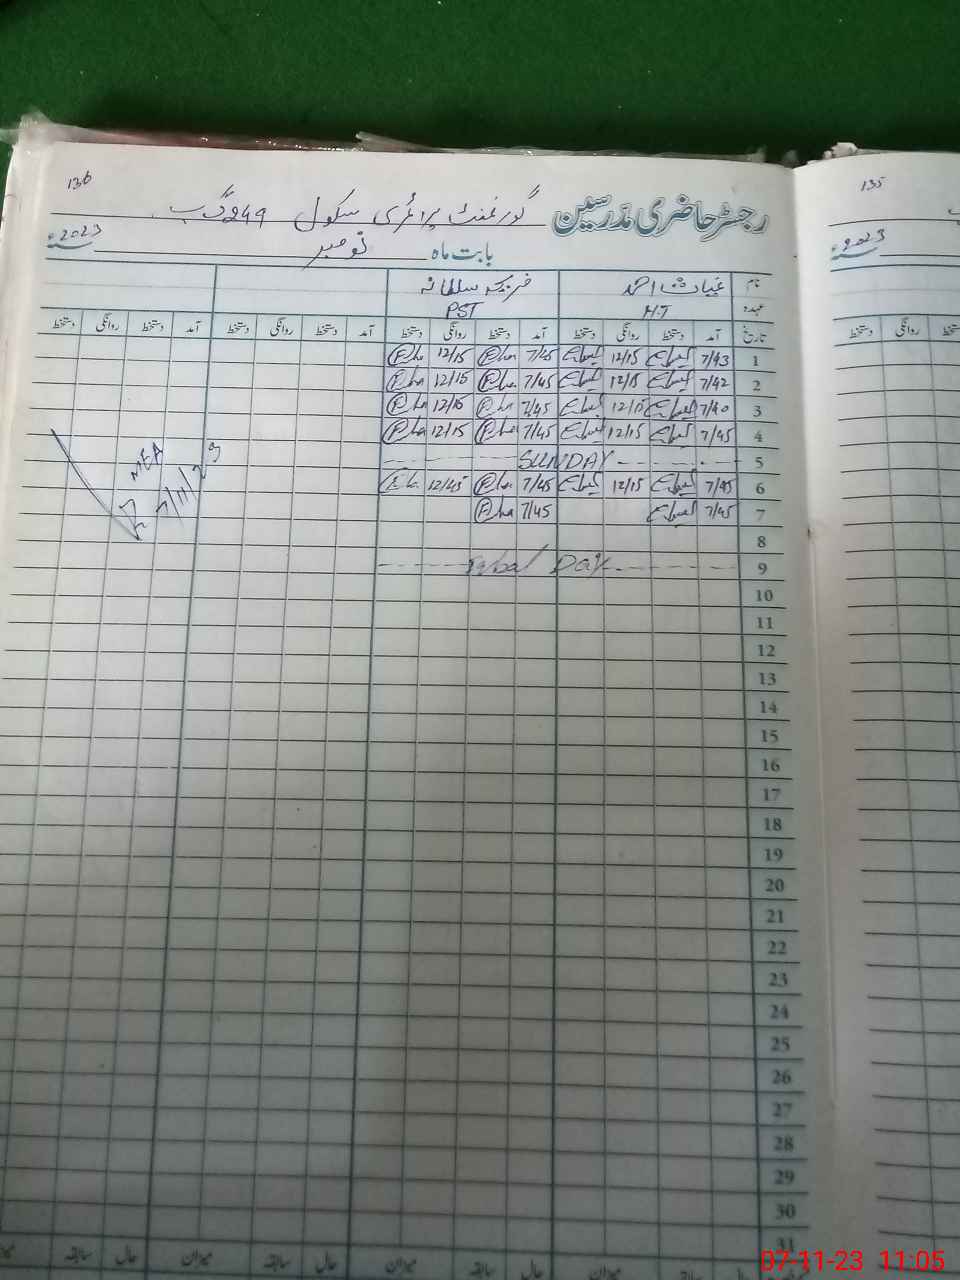 136
رجسٹر حاضری مدرسین گورنمنٹ پرائمری سکول 249 گ ب
بابت ماہ نومبر 2023ء
نام
عہدہ H.T PST
تاریخ آمد دستخط روانگی دستخط آمد دستخط روانگی دستخط آمد دستخط روانگی دستخط آمد دستخط روانگی دستخط
1 7/43 12/15 7/45 12/15
2 7/42 12/15 7/45 12/15
3 7/40 12/15 7/45 12/15
4 7/45 12/15 7/45 12/15
5 SUNDAY
6 7/45 12/15 7/45 12/45
7 7/45 7/45
8
9 Iqbal Day
10
11
12
13
14
15
16
17
18
19
20
21
22
23
24
25
26
27
28
29
30
31
میزان حال سابقہ میزان حال سابقہ میزان حال سابقہ
MEA
7/11/23
135
2023ء
روانگی دستخط
07-11-23 11:05